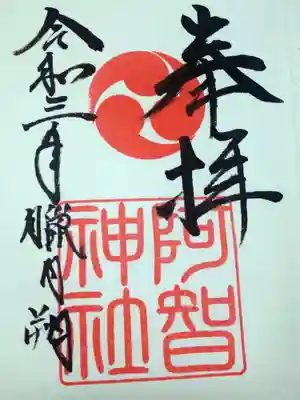 奉拝
阿智神社
令和三年臘月朔